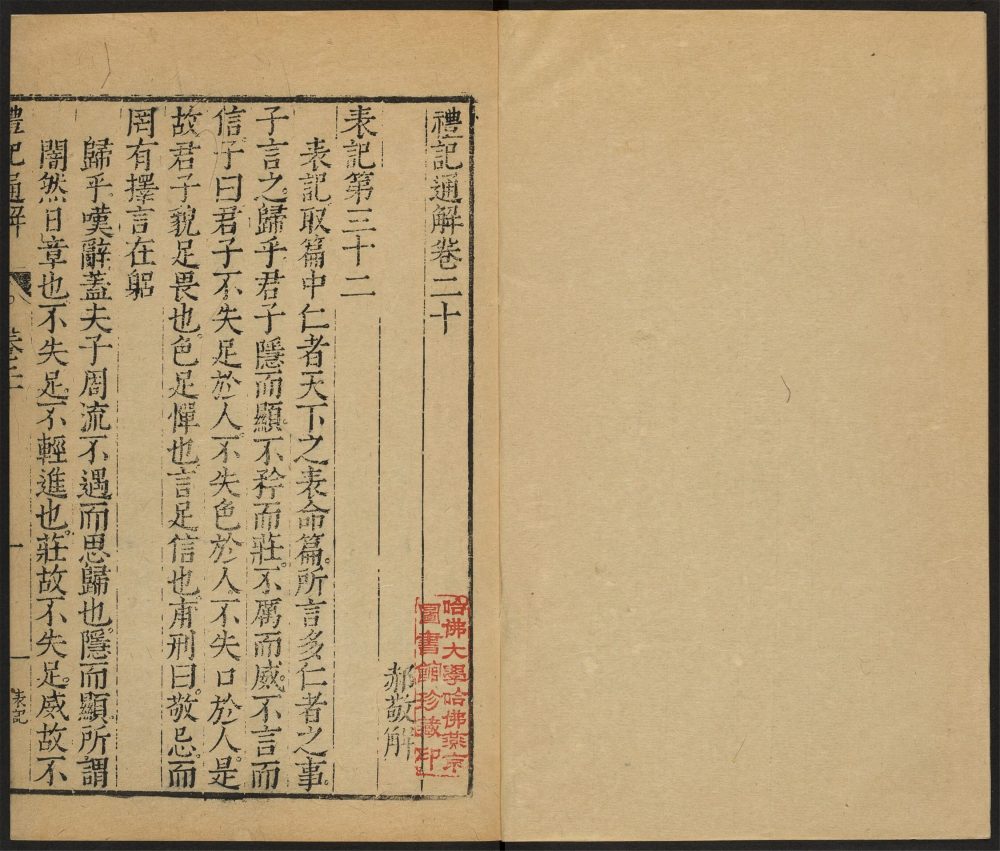 禮記通解卷二十
郝敬解
表記第三十二
表記取篇中仁者天下之表命篇所言多仁者之事
子言之歸乎君子隱而顯不矜而莊不厲而威不言而
信子曰君子不失足於人不失色於人不失口於人是
故君子貌足畏也色足憚也言足信也甫刑曰敬忌而
罔有擇言在躬
歸乎嘆辭蓋夫子周流不遇而思歸也隱而顯所謂
闇然日章也不失足不輕進也莊故不失足威故不
禮記通解
卷二十
一
表記
哈佛大學哈佛燕京
圖書館珍藏印